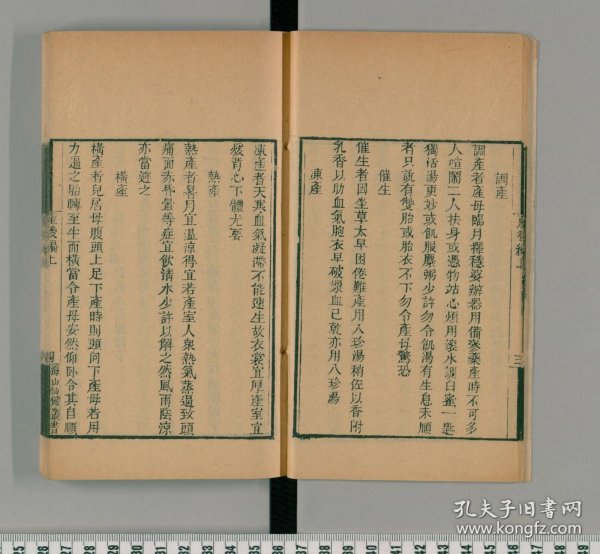 調產
調產者產母臨月擇穩婆辦器用備葠藥產時不可多
人喧鬧二人扶身或憑物站心煩用滾水調白蜜一匙
獨活湯更妙或飢服糜粥少許勿令飢渴有生息未順
者只說有雙胎或胎衣不下勿令產母驚恐
催生
催生者因坐草太早困倦難產用八珍湯稍佐以香附
乳香以助血氣胞衣早破漿血已乾亦用八珍湯
凍產
三
凍產者天寒血氣凝滯不能速生故衣裳宜厚產室宜
煖背心下體尤要
熱產
熱產者暑月宜溫涼得宜若產室人衆熱氣蒸逼致頭
痛面赤昏暈等症宜飲清水少許以解之然風雨陰涼
亦當避之
橫產
橫產者兒居母腹頭上足下產時則頭向下產母若用
力逼之胎轉至半而橫當令產母安然仰臥令其自順
產後編上
海山仙館叢書
孔夫子旧书网
www.kongfz.com
25 26 27 28 29 30 31 32 33 34 35 36 37 38 39 40 41 42 43 44 45 46 47 48 49